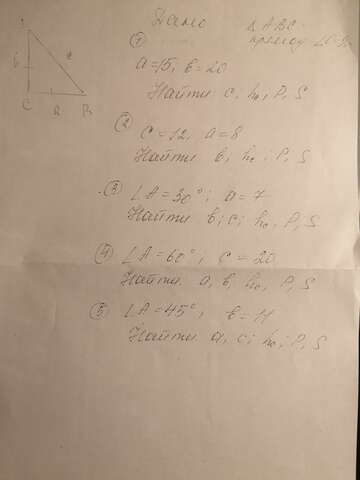 Дано
△ ABC -
прямоу ∠C=90
A
в
c
C
a
B
① 
a=15, в=20
Найти c, hc, P, S
②
c=12, a=8
Найти в, hc; P, S
③ ∠A=30°; a=7
Найти в; c; hc, P, S
④ ∠A=60°; c=20
Найти a, в, hc, P, S
⑤ ∠A=45°; в=11
Найти a, c; hc; P, S